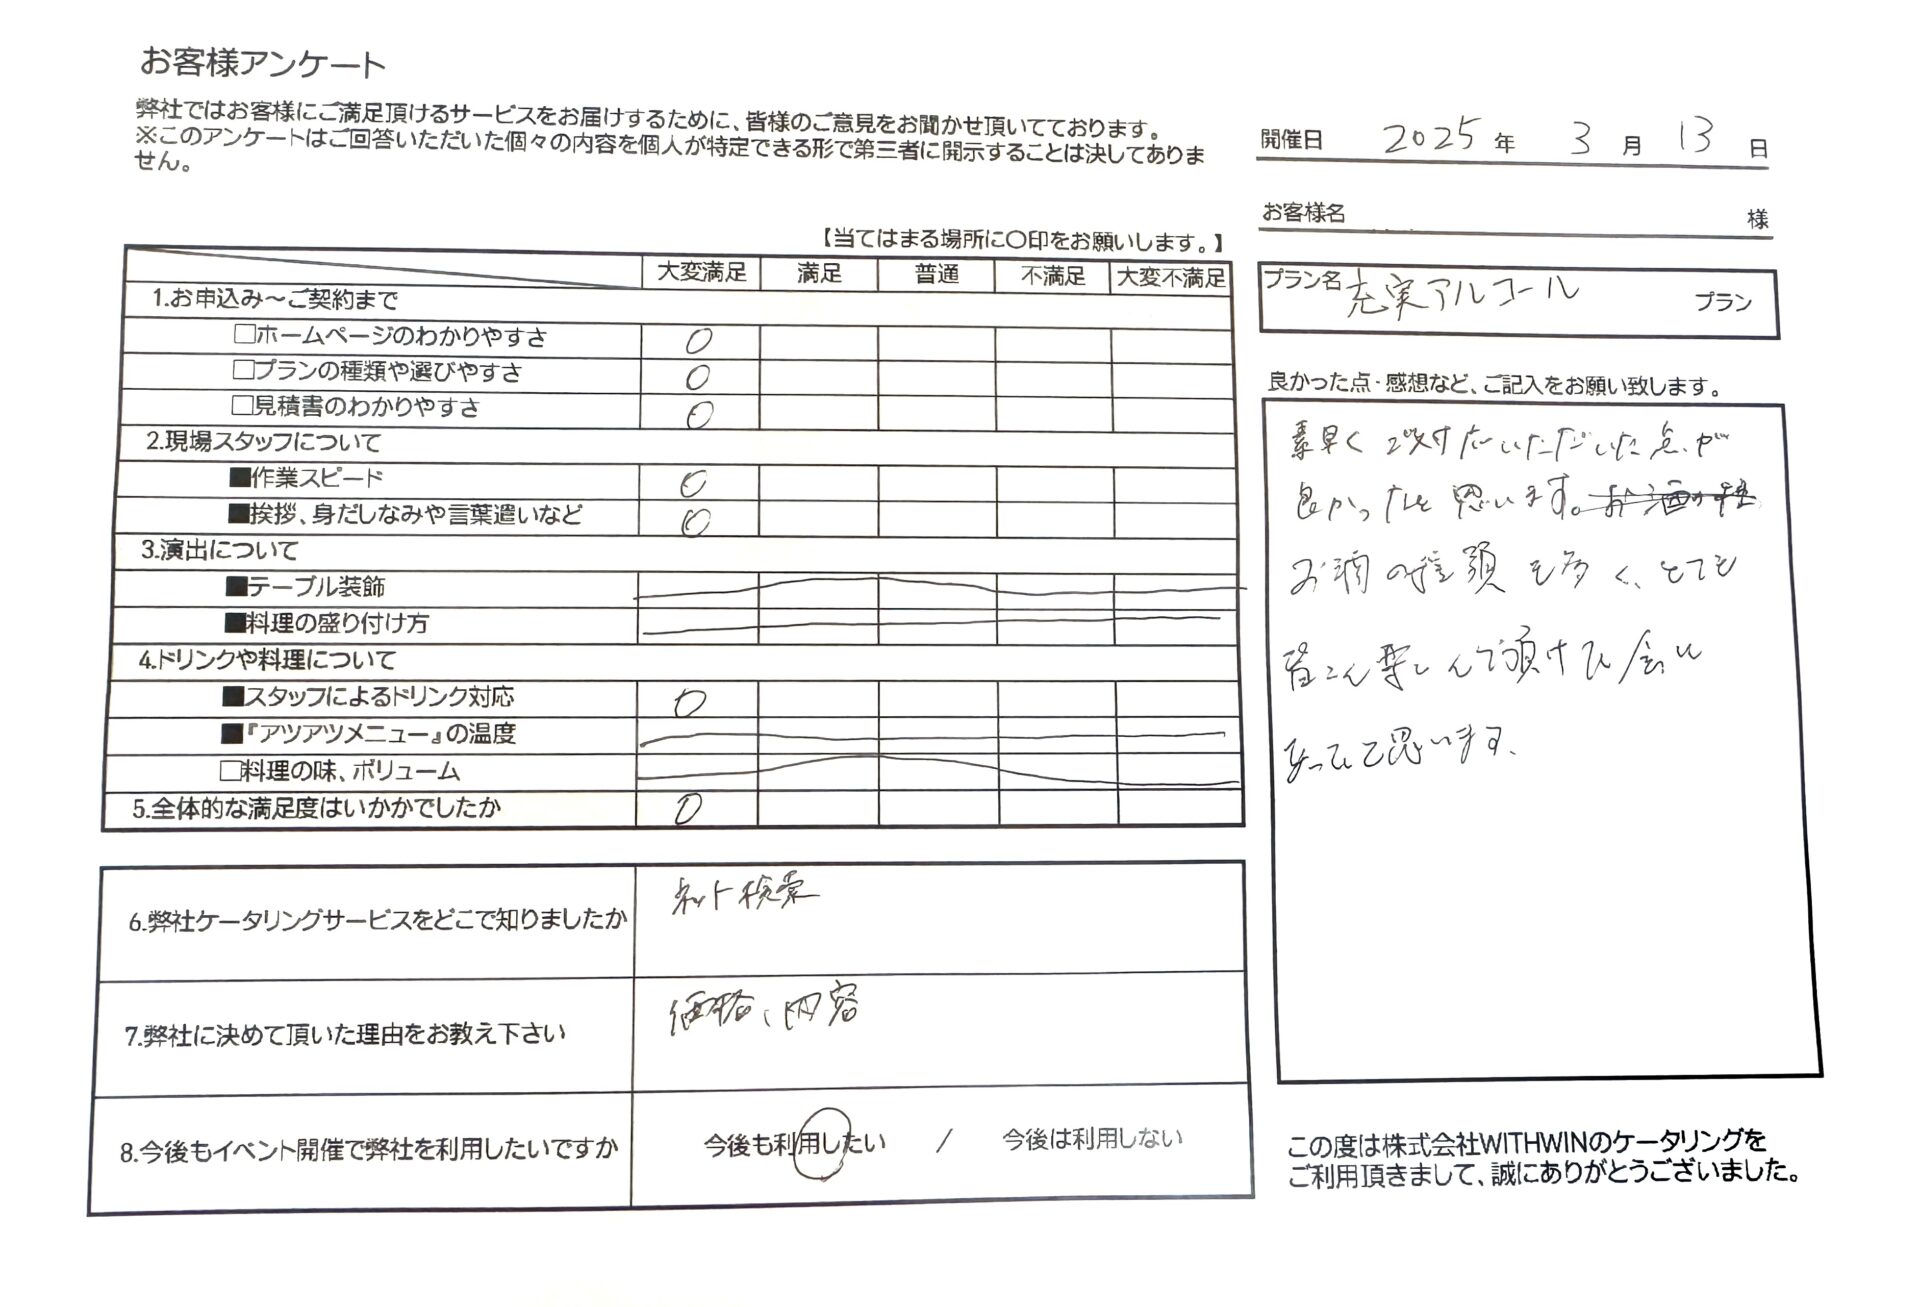 お客様アンケート
弊社ではお客様にご満足頂けるサービスをお届けするために、皆様のご意見をお聞かせ頂いてております。
※このアンケートはご回答いただいた個々の内容を個人が特定できる形で第三者に開示することは決してありま
せん。
開催日 2025 年 3 月 13 日
お客様名 様
【当てはまる場所に〇印をお願いします。】
プラン名 充実アルコール プラン
大変満足 満足 普通 不満足 大変不満足
1.お申込み～ご契約まで
□ホームページのわかりやすさ 〇
□プランの種類や選びやすさ 〇
□見積書のわかりやすさ 〇
2.現場スタッフについて
■作業スピード 〇
■挨拶、身だしなみや言葉遣いなど 〇
3.演出について
■テーブル装飾
■料理の盛り付け方
4.ドリンクや料理について
■スタッフによるドリンク対応 〇
■『アツアツメニュー』の温度
□料理の味、ボリューム
5.全体的な満足度はいかかでしたか 〇
良かった点・感想など、ご記入をお願い致します。
素早くご対応いただいた点が
良かったと思います。お酒の種
お酒の種類も多く、とても
皆さん楽しんで頂けた会に
なったと思います。
6.弊社ケータリングサービスをどこで知りましたか ネット検索
7.弊社に決めて頂いた理由をお教え下さい 価格、内容
8.今後もイベント開催で弊社を利用したいですか 今後も利用したい / 今後は利用しない
この度は株式会社WITHWINのケータリングを
ご利用頂きまして、誠にありがとうございました。